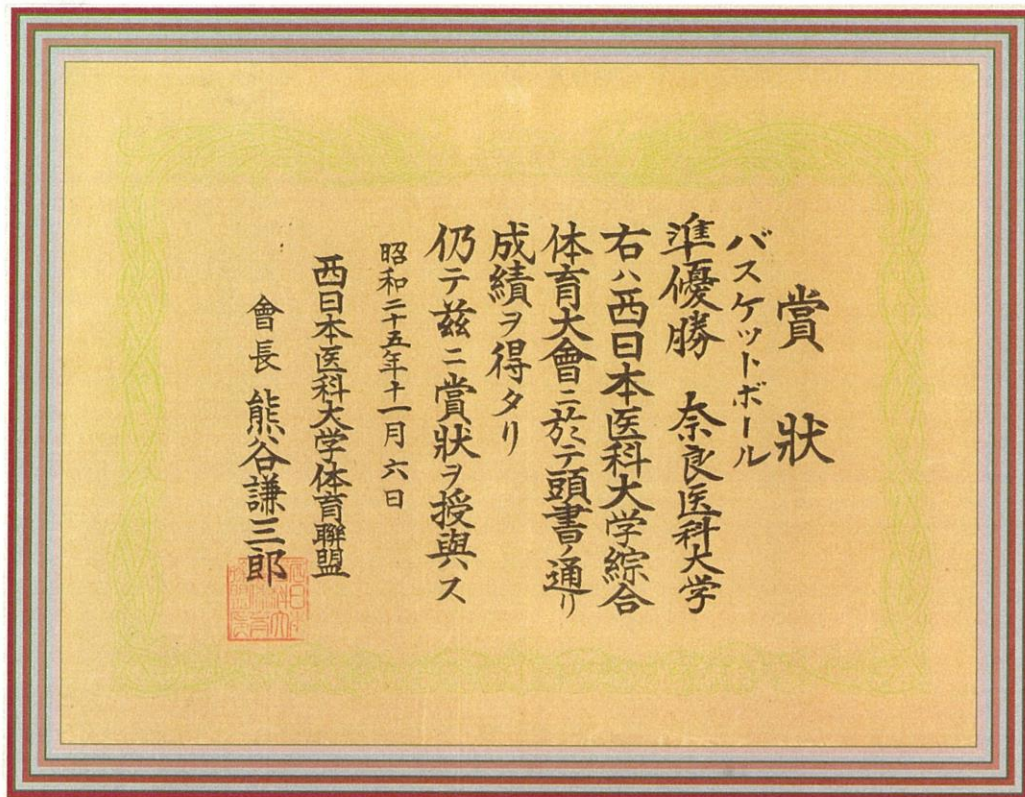 賞狀
バスケットボール
準優勝 奈良医科大学
右ハ西日本医科大学綜合
体育大會ニ於テ頭書ノ通リ
成績ヲ得タリ
仍テ茲ニ賞狀ヲ授與ス
昭和二十五年十一月六日
西日本医科大学体育聯盟
會長 熊谷謙三郎